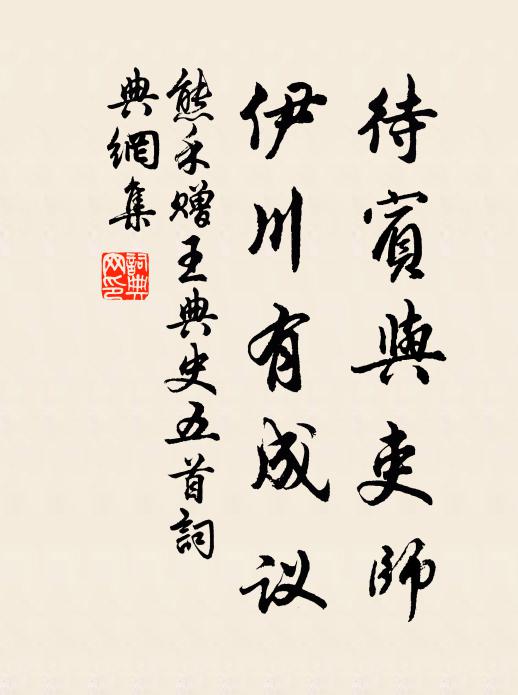 待賓與吏師
伊川有成议
熊禾赠王典史五首詞
典網集
詞典網印